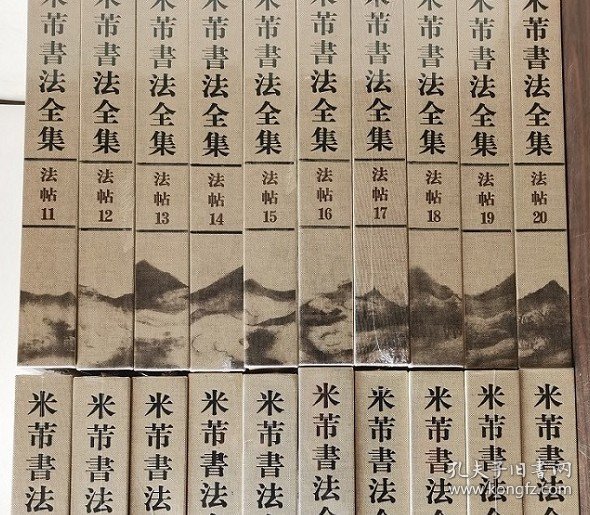 米芾書法全集 法帖 11
米芾書法全集 法帖 12
米芾書法全集 法帖 13
米芾書法全集 法帖 14
米芾書法全集 法帖 15
米芾書法全集 法帖 16
米芾書法全集 法帖 17
米芾書法全集 法帖 18
米芾書法全集 法帖 19
米芾書法全集 法帖 20
米芾書法
米芾書法
米芾書法
米芾書法
米芾書法
米芾書法全
米芾書法
米芾書法
米芾書法
米芾書法
孔夫子旧书网
www.kongfz.com